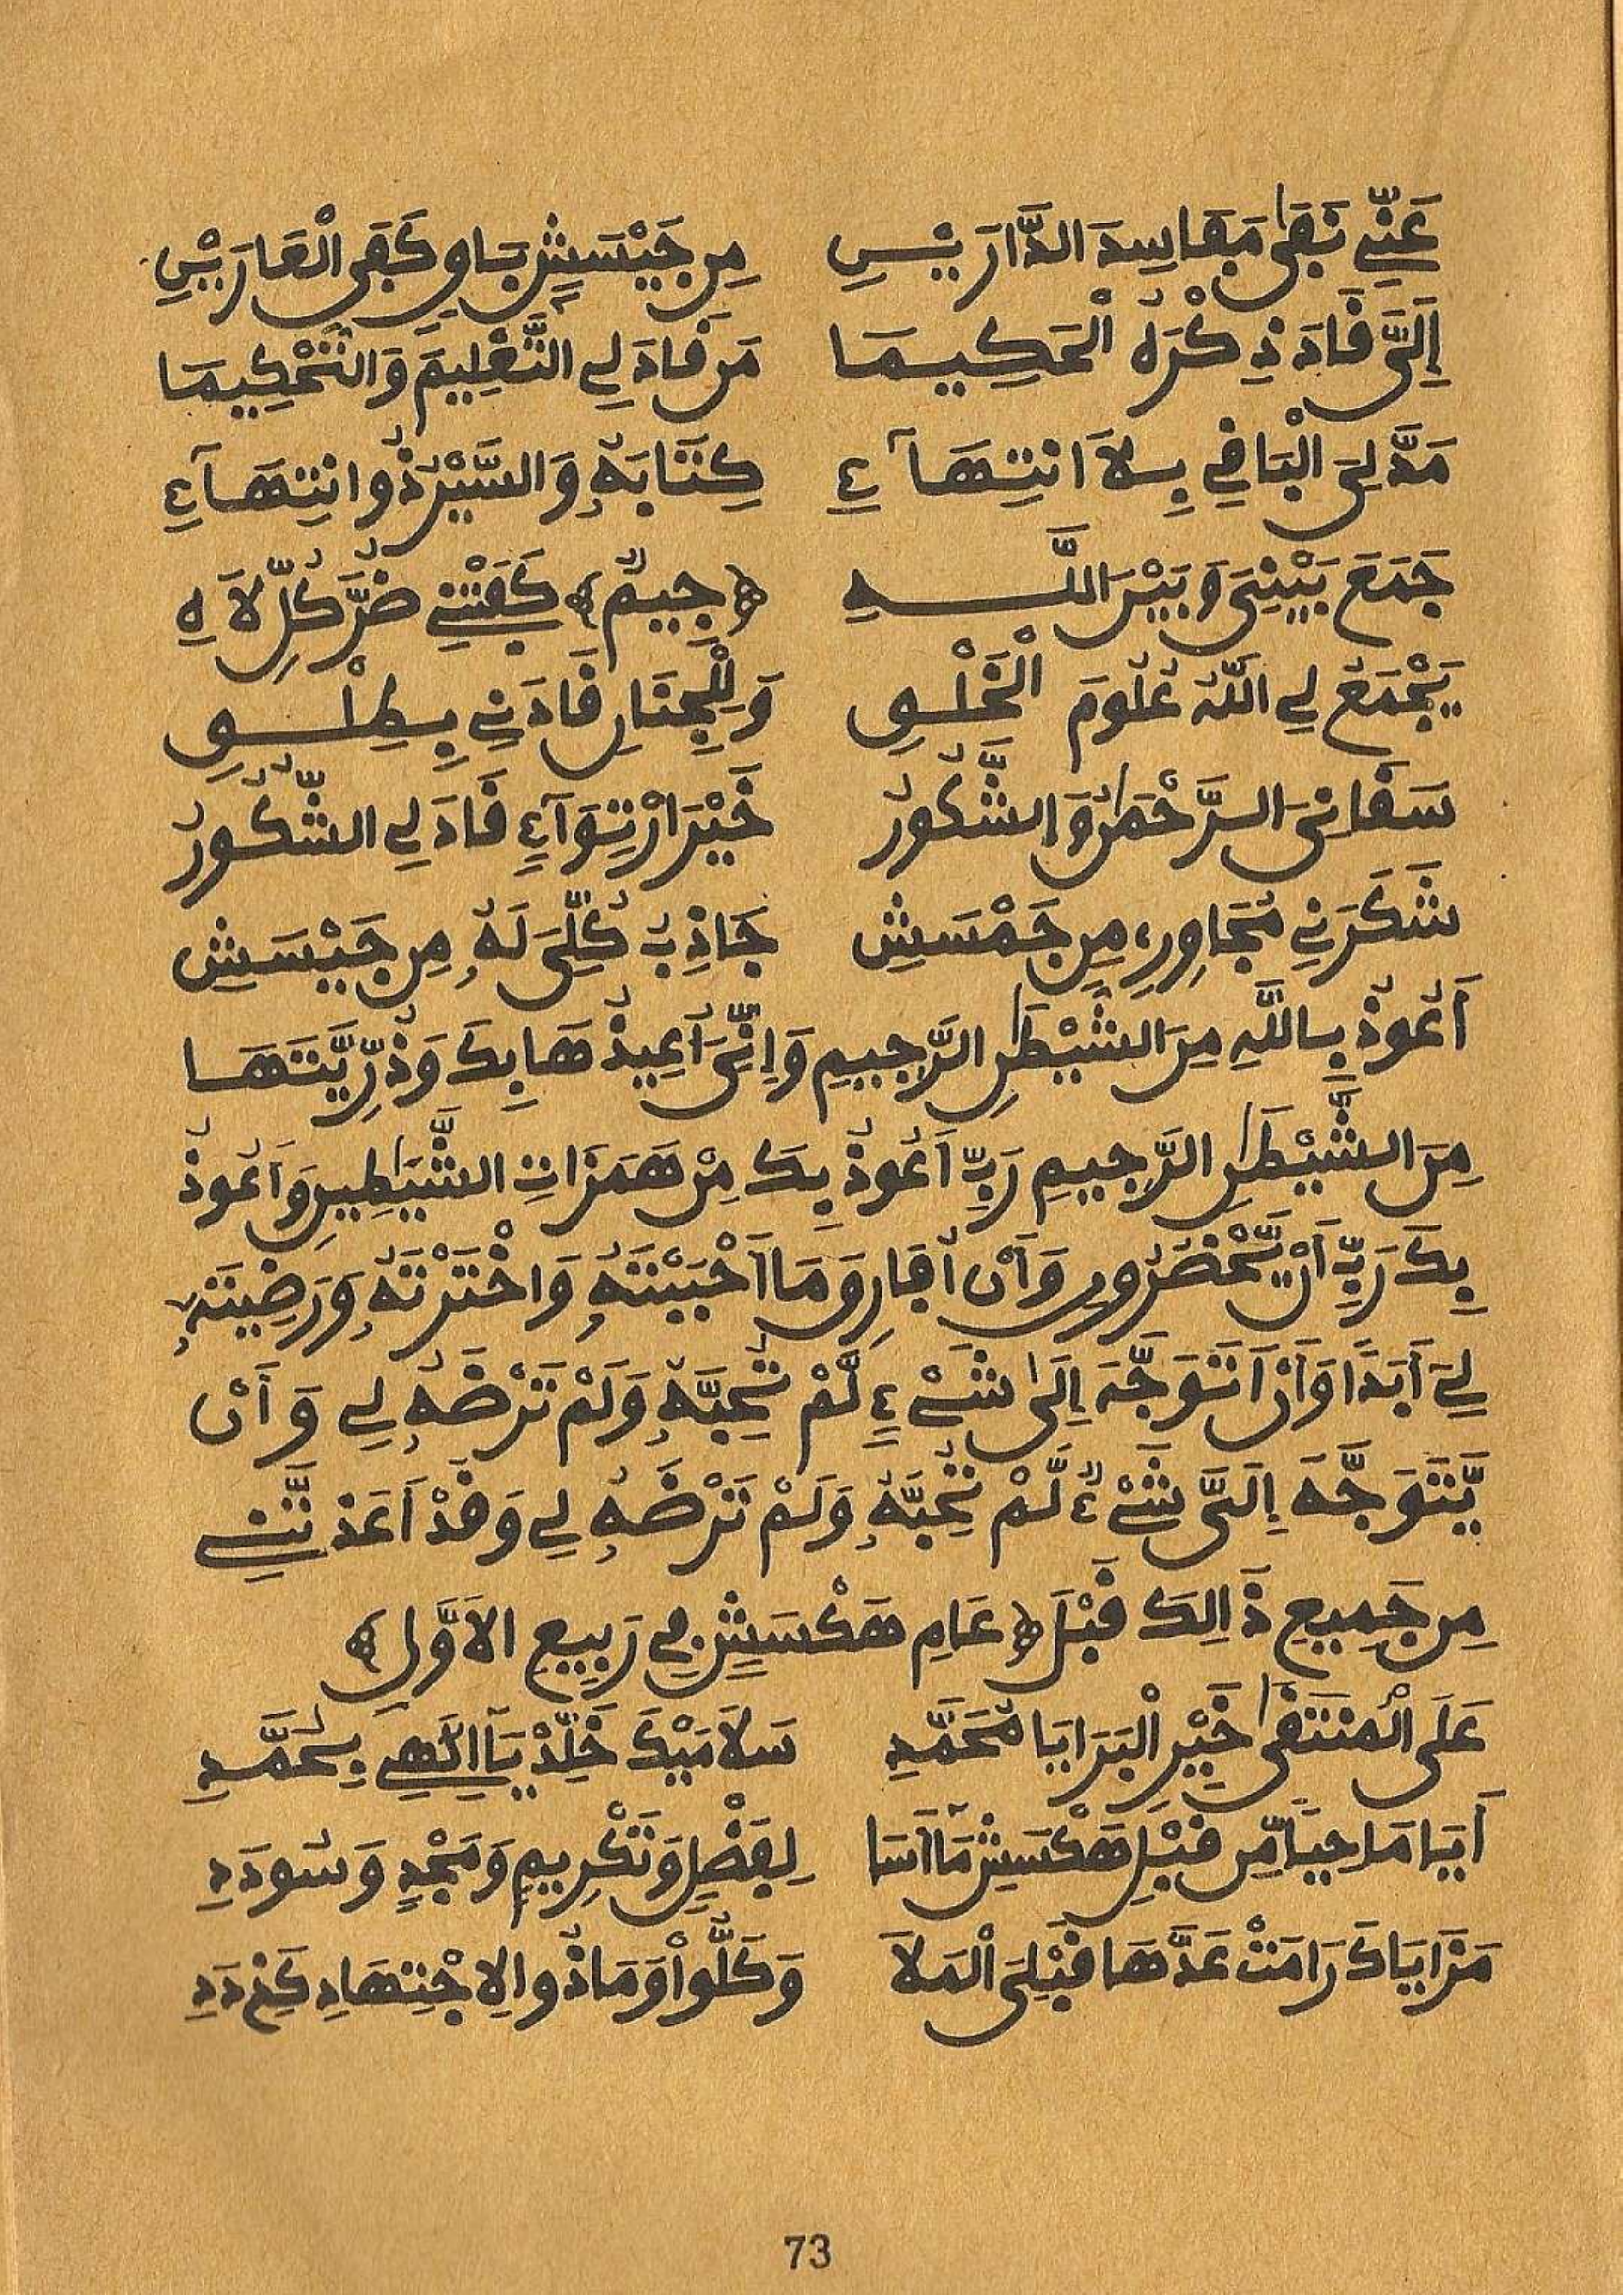 عَنِّے نَفَى مَفَاسِدَ الدَّارَيْسِ مِن جَيْسَشٍ بَاوٍ كَفَى الْعَارَيْسِ
إِلَيَّ فَادَ ذِكْرُهُ الْحَكِيمَا مَن فَادَ لِے التَّعْلِيمَ وَالتَّحْكِيمَا
مَدَّ لِيَ الْبَافِے بِلاَ انتِهَآءٍ كِتَابَهُ وَالسَّيْرُ ذُو انتِهَآءِ
جَمَعَ بَيْنِى وَبَيْنَ اللَّهِ ﴿جِيمٌ﴾ كَفَتْنِے ضُرَّ كُلِّ لاَهِ
يَجْمَعُ لِے اللَّهُ عُلُومَ الْخَلْوِ وَلِلْجِنَانِ فَادَنِے بِطِلْوِ
سَفَانِىَ الرَّحْمَٰنُ وَالشَّكُورُ خَيْرَ ارْتِوَآءٍ فَادَ لِے الشُّكُورُ
شَكَرَنِے مُجَاوِرِے مِن جَمْسَشٍ جَاذِبُ كُلِّىَ لَهُ مِن جَيْسَشِ
أَعُوذُ بِاللَّهِ مِنَ الشَّيْطَٰنِ الرَّجِيمِ وَإِنِّىَ أُعِيذُهَا بِكَ وَذُرِّيَّتَهَا
مِنَ الشَّيْطَٰنِ الرَّجِيمِ رَبِّ أَعُوذُ بِكَ مِنْ هَمَزَاتِ الشَّيَٰطِينِ وَأَعُوذُ
بِكَ رَبِّ أَنْ يَّحْضُرُونِ وَأَن أُفَارِقَ مَا أَحْبَبْتَهُ وَاخْتَرْتَهُ وَرَضِيتَهُ
لِےَ أَبَدًا وَأَنْ أَتَوَجَّهَ إِلَىٰ شَےْءٍ لَّمْ تُحِبَّهُ وَلَمْ تَرْضَهُ لِے وَأَن
يَّتَوَجَّهَ إِلَيَّ شَےْءٌ لَّمْ تُحِبَّهُ وَلَمْ تَرْضَهُ لِے وَقَدْ أَعَذْتَّنِے
مِن جَمِيعِ ذَالِكَ قَبْلَ ﴿عَامِ هَكْسَشٍ فِے رَبِيعِ الاَوَّلِ﴾
عَلَى الْمُنتَقَىٰ خَيْرِ الْبَرَايَا مُحَمَّدِ سَلاَمَيْكَ خَلِّدْ يَآ إِلَٰهِے بِسَحْمَدِ
أَيَا مَاحِيًا مِّن قَبْلِ هَكْسَشٍ مَآ أَسَا لِفَضْلٍ وَتَكْرِيمٍ وَمَجْدٍ وَسُودَدِ
مَزَايَاكَ رَامَتْ عَدَّهَا قَبْلِىَ الْمَلاَ وَكَلُّواْ وَمَا ذُو الِاجْتِهَادِ كَذِے دَدِ
73